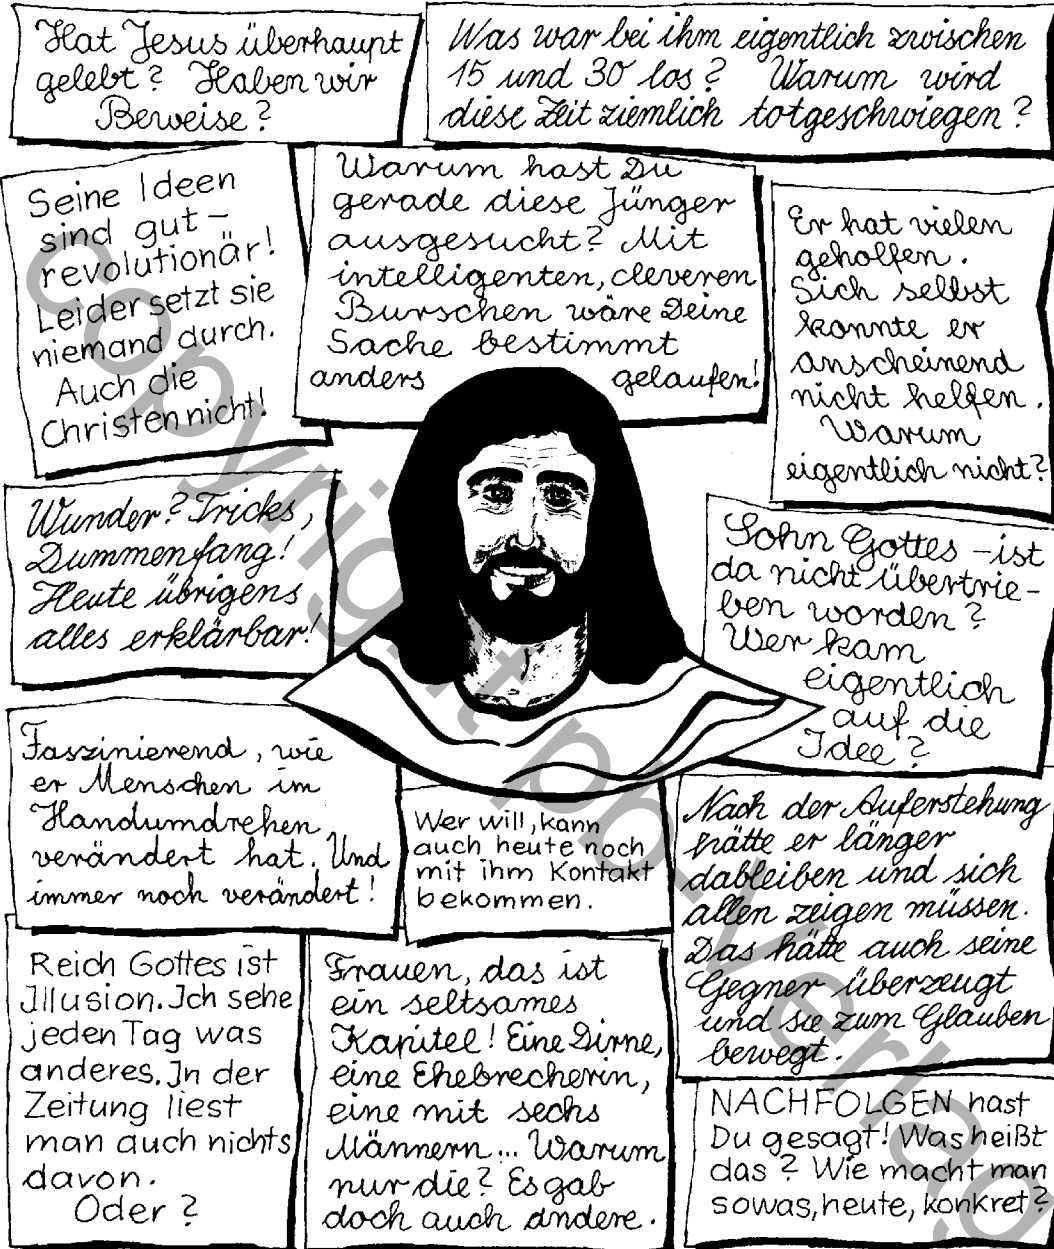 Hat Jesus überhaupt
gelebt? Haben wir
Beweise?
Was war bei ihm eigentlich zwischen
15 und 30 los? Warum wird
diese Zeit ziemlich totgeschwiegen?
Seine Ideen
sind gut –
revolutionär!
Leider setzt sie
niemand durch.
Auch die
Christen nicht!
Warum hast Du
gerade diese Jünger
ausgesucht? Mit
intelligenten, cleveren
Burschen wäre Deine
Sache bestimmt
anders gelaufen!
Er hat vielen
geholfen.
Sich selbst
konnte er
anscheinend
nicht helfen.
Warum
eigentlich nicht?
Wunder? Tricks,
Dummenfang!
Heute übrigens
alles erklärbar!
Sohn Gottes – ist
da nicht übertrie-
ben worden?
Wer kam
eigentlich
auf die
Idee?
Faszinierend, wie
er Menschen im
Handumdrehen
verändert hat. Und
immer noch verändert!
Wer will, kann
auch heute noch
mit ihm Kontakt
bekommen.
Nach der Auferstehung
hätte er länger
dableiben und sich
allen zeigen müssen.
Das hätte auch seine
Gegner überzeugt
und sie zum Glauben
bewegt.
Reich Gottes ist
Illusion. Ich sehe
jeden Tag was
anderes. In der
Zeitung liest
man auch nichts
davon.
Oder?
Frauen, das ist
ein seltsames
Kapitel! Eine Dirne,
eine Ehebrecherin,
eine mit sechs
Männern... Warum
nur die? Es gab
doch auch andere.
NACHFOLGEN hast
Du gesagt! Was heißt
das? Wie macht man
sowas, heute, konkret?
copyright pb-Verlag